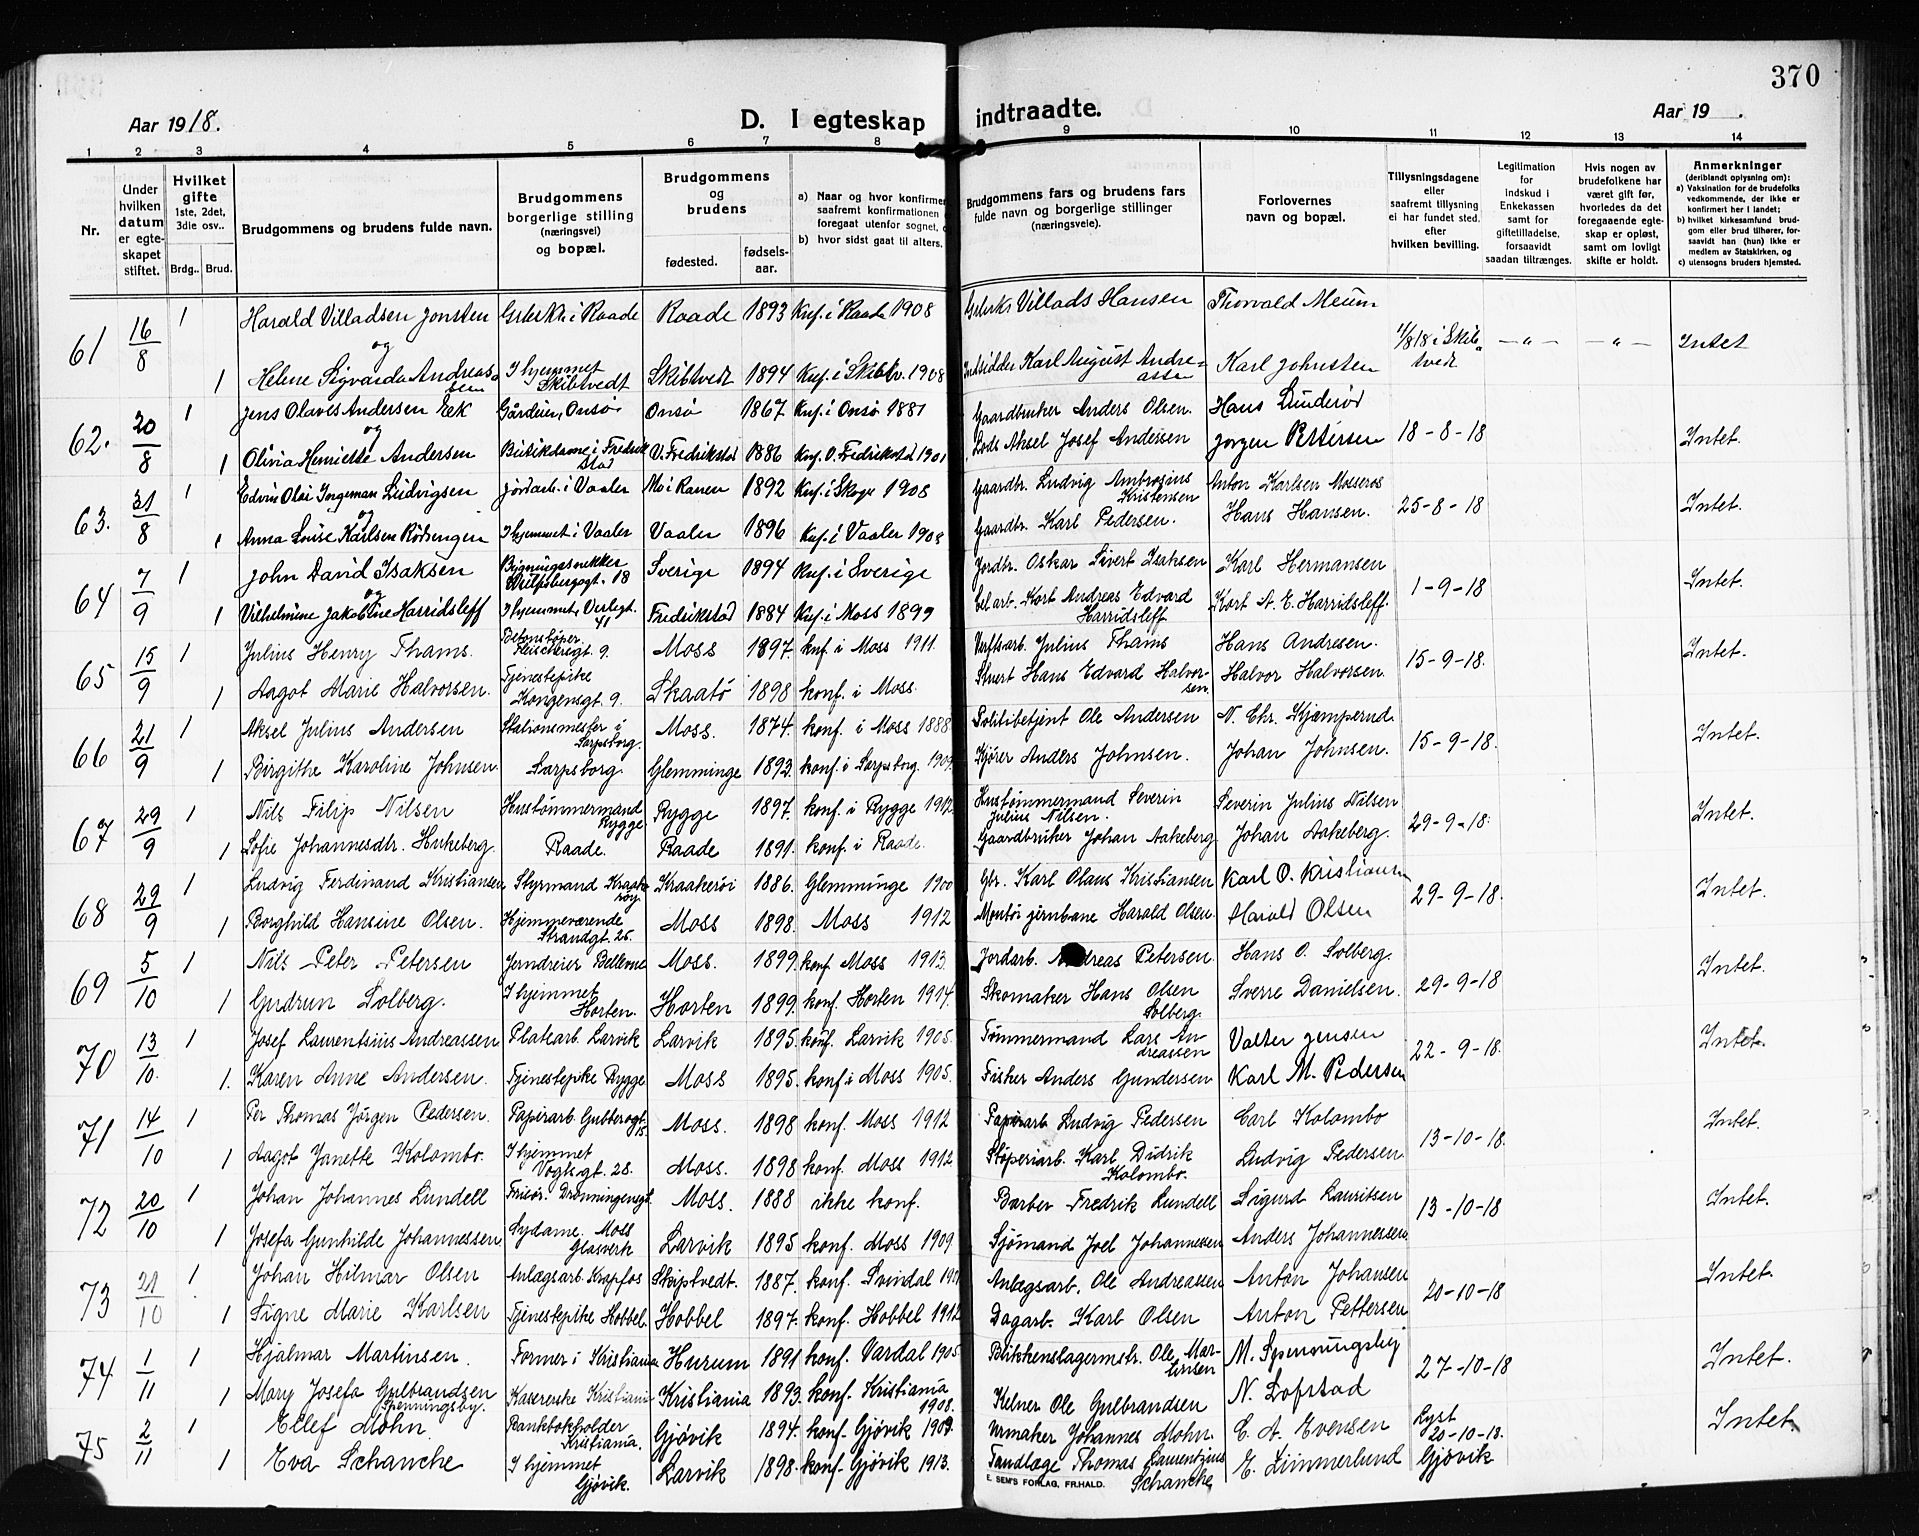 370
Aar 1918.
D. I egteskap indtraadte.
Aar 19 .
1 2 3 4 5 6 7 8 9 10 11 12 13 14
Nr.
Under hvilken datum er egteskapet stiftet.
Hvilket gifte 1ste, 2det, 3die osv..
Brdg.. Brud.
Brudgommens og brudens fulde navn.
Brudgommens borgerlige stilling (næringsvei) og bopæl.
Brudgommens og brudens
fødested.
fødselsaar.
a) Naar og hvor konfirmer saafremt konfirmationen foregaat utenfor sognet,
b) hvor sidst gaat til alters.
Brudgommens fars og brudens fars fulde navn og borgerlige stillinger (næringsveie).
Forlovernes navn og bopæl.
Tillysningsdagene eller saafremt tillysning ei har fundet sted. efter hvilken bevilling.
Legitimation for indskud i Enkekassen samt for giftetilladelse, forsaavidt saadan tiltrænges.
Hvis nogen av brudefolkene har været gift før, hvorledes da det foregaaende egteskap er opløst, samt om lovligt skifte er holdt.
Anmerkninger (deriblandt oplysning om):
a) Vaksination for de brudefolks vedkommende, der ikke er konfirmert her i landet;
b) hvilket kirkesamfund brudgom eller brud tilhører, forsaavidt han (hun) ikke er medlem av Statskirken, og
c) utensogns bruders hjemsted.
61 16/8 1 Harald Villadsen Jonsten Raade 1893 Knf. i Raade 1908 Villads Hansen Thorvald Meum
og
1 Helene Sigvarda Andreassen I hjemmet Skibtvedt Skibtvedt 1894 Knf. i Skibtv. 1908 Karl August Andreassen Karl Johnsten 11/8 18 i Skibtvedt — „ — — „ — Intet
62. 20/8 1 Jens Olaves Andersen Eek Gårdeier, Onsø Onsø 1867 Knf. i Onsø 1881 Gaardbruker Anders Olsen. Hans Lunderød
og
1 Olivia Henriette Andersen Butikdame i Fredrikstad V. Fredrikstad 1886 Knf. V. Fredrikstad 1901 Lods Aksel Josef Andersen Jørgen Pettersen 18-8-18 Intet.
63. 31/8 1 Edvin Olai Ingeman Ludvigsen Jordarb. i Vaaler Mo i Ranen 1892 Knf. i Skoger 1908 Gaardbr. Ludvig Ambrosius Kristensen Anton Karlsen Mosseros
og
1 Anna Louise Karlsen Rødsengen I hjemmet i Vaaler Vaaler 1896 Knf. i Vaaler 1908 Gaardbr. Karl Pedersen. Hans Hansen. 25-8-18 Intet.
64 7/9 1 John David Isaksen Bygningssnekker 18 Sverige 1894 Knf. i Sverige Jordbr. Oskar Sivert Isaksen Karl Hermansen
og
1 Vilhelmine Jakobine Harridsleff I hjemmet, Verlegt. 41 Fredrikstad 1884 Knf. i Moss 1899 Kort Andreas Edvard Harridsleff Kort A. E. Harridsleff. 1-9-18 Intet.
65 15/9 1 Julius Henry Thams. Betonstøper Fleischersgt. 9. Moss 1897. knf. i Moss 1911. Verftsarb. Julius Thams Hans Andresen.
1 Aagot Marie Halvorsen. Tjenestepike Kongensgt. 9. Skaatø 1898 konf. i Moss. Stuert Hans Edvard Halvorsen. Halvor Halvorsen. 15-9-18. Intet.
66 21/9 1 Aksel Julius Andersen Stationsmester i Sarpsborg. Moss. 1874. konf. i Moss 1888 Politibetjent Ole Andersen N. Chr. Kjæmperud
1 Birgithe Karoline Johnsen Sarpsborg. Glemminge 1893. konf. i Sarpsborg. 1909 Kjører Anders Johnsen. Johan Johnsen. 15-9-18. Intet.
67 29/9 1 Nils Filip Nilsen Hustømmermand Rygge Rygge 1897. konf. i Rygge 1912. Hustømmermand Severin Julius Nilsen. Severin Julius Nilsen
1 Sofie Johannesdtr. Hukeberg. Raade. Raade 1891. konf. i Raade. Gaardbruker Johan Aakeberg Johan Aakeberg. 29-9-18. Intet.
68 29/9 1 Ludvig Ferdinand Kristiansen Styrmand Kraakerøy. Kraakerøi 1886. Glemminge 1900 Gbr. Karl Olaus Kristiansen Karl O. Kristiansen
1 Borghild Hansine Olsen. Hjemmeværende Strandgt. 25. Moss 1898. Moss 1912 Montør jernbane Harald Olsen Harald Olsen 29-9-18. Intet.
69 5/10 1 Nils Peter Petersen Jerndreier Bellevue Moss. 1899. konf. Moss 1913. Jordarb. Andreas Petersen. Hans O. Solberg.
1 Gudrun Solberg. I hjemmet Horten. Horten 1899. konf. Horten 1914. Skomaker Hans Olsen Solberg. Sverre Danielsen. 29-9-18 Intet.
70 13/10. 1 Josef Laurentsius Andreassen Platearb. Larvik Larvik 1895. konf. Larvik 1905. Tømmermand Lars Andreassen Valter Jensen
1. Karen Anne Andersen. Tjenestepike Rygge Moss 1895. konf. i Moss 1905. Fisker Anders Gundersen Karl M. Pedersen 22-9-18. Intet.
71 14/10 1 Per Thomas Jørgen Pedersen. Papirarb. Gubberogt. 15. Moss. 1898 konf. Moss 1912 Papirarb Ludvig Pedersen Carl Kolombo
1 Aagot Janette Kolombo. I hjemmet Voglsgt. 28. Moss. 1898 konf. Moss 1912 Støperiarb. Karl Didrik Kolombo. Ludvig Pedersen 13-10-18. Intet.
72 20/10 1 Johan Johannes Lundell Frisør. Dronningensgt. Moss. 1888 ikke konf. Barber Fredrik Lundell Sigurd Lauritsen
1 Josefa Gunhilde Johannessen Sydame, Moss Glasverk Larvik 1895 konf. Moss 1909 Sjømand Joel Johannessen Anders Johannessen 13-10-18 Intet.
73 21/10 1 Johan Hilmar Olsen Anlægsarb. Krapfos Skiptvedt. 1887. konf. Svindal Anlægsarb. Ole Andreassen Anton Johansen
1 Signe Marie Karlsen Tjenestepike Hobbel. Hobbel 1897. konf. Hobbel 1912 Dagarb. Karl Olsen Anton Pettersen 20-10-18 Intet.
74 1/11 1 Hjalmar Martinsen. Former i Kristiania Hurum 1891 konf. Vardal 1905. Blikkenslagermstr. Ole Martinsen M. Spenningsby
1 Mary Josefa Gulbrandsen Spenningsby. Kasererske Kristiania Kristiania 1893. konf. Kristiania 1908. Kelner Ole Gulbrandsen N. Lofstad 27-10-18 Intet.
75 2/11 1 Ellef Mohn. Bankbokholder Kristiania. Gjøvik 1894. konf. Gjøvik 1909. Urmaker Johannes Mohn. C. A. Evensen
1 Eva Schanche I hjemmet Gjøvik. Larvik 1898. konf. Gjøvik 1913. Tandlæge Thomas Laurentzius Schanche E. Limmerlund Lyst 20-10-18. Gjøvik Intet.
E. SEM'S FORLAG, FR.HALD.